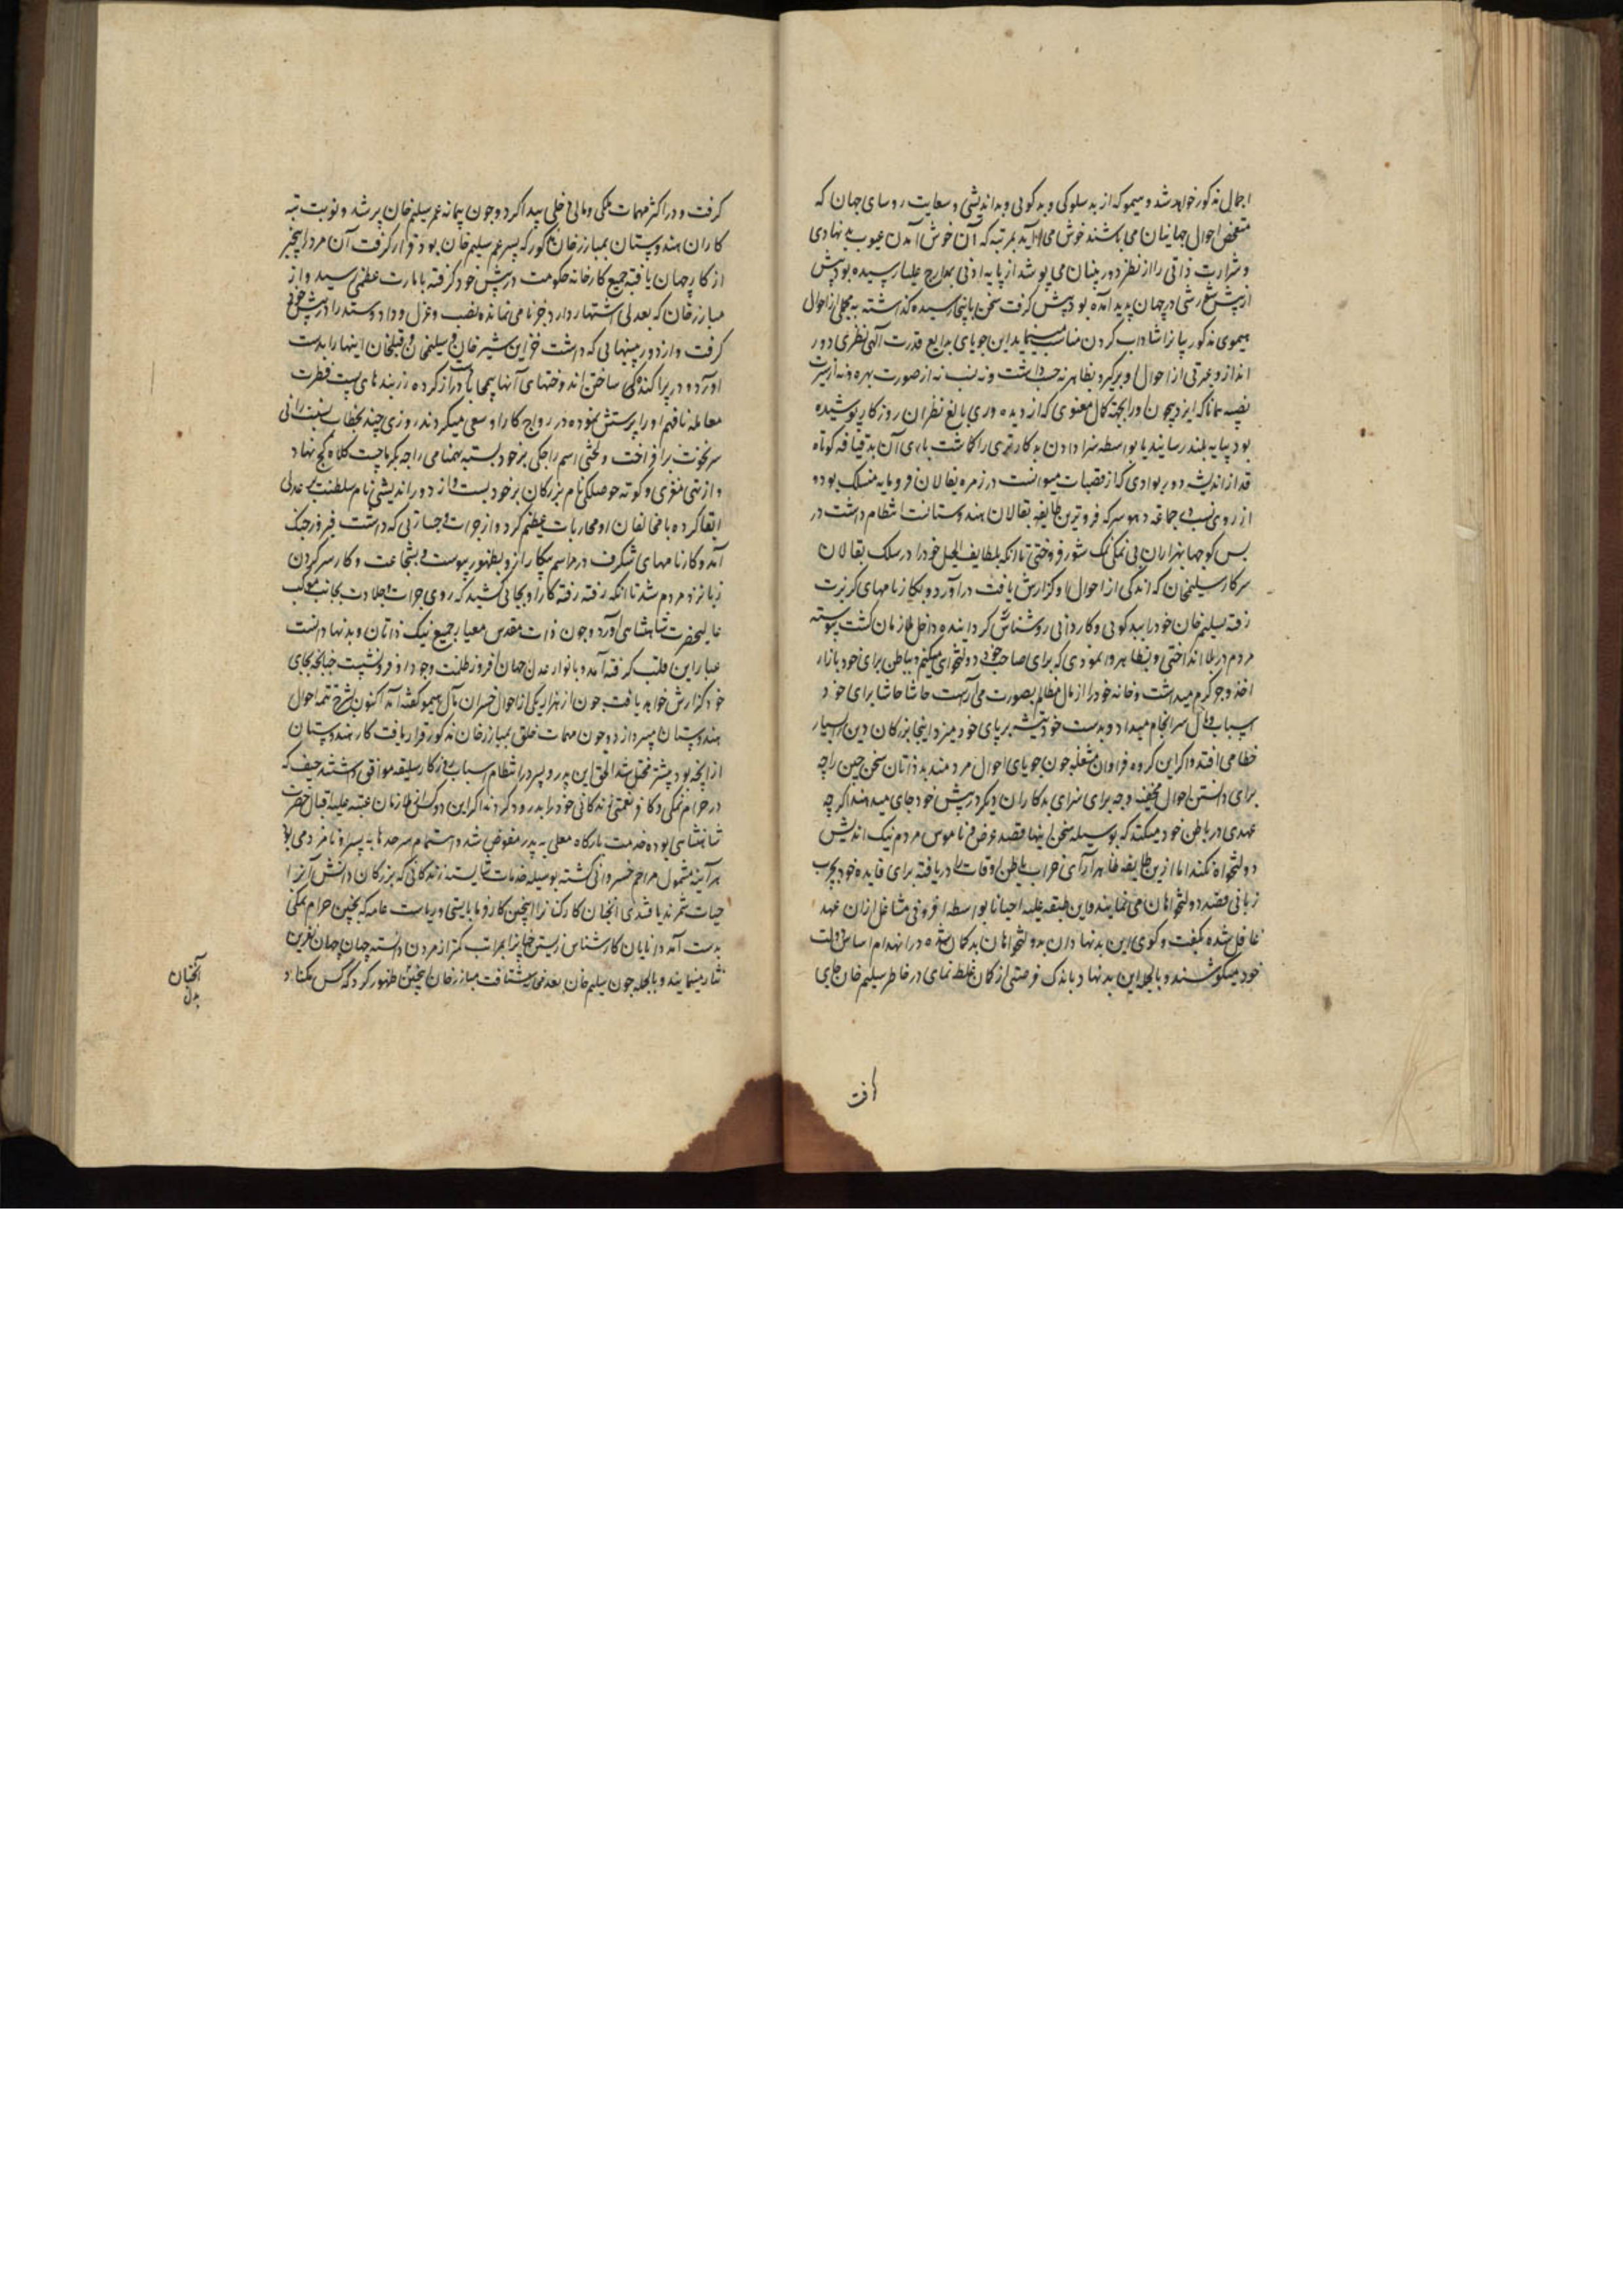 اجمال مذکور خواهد شد و هیمو که از بد سلوکی و بد کوئی و بد اندیشی و سعایت روسای جهان که
متفحص احوال جهانیان می باشند خوش می آید بمرتبه که آن خوش آمدن عیوب بد نهادی
و شرارت ذاتی را از نظر دوربینان می پوشد از پایه ادنی بمدارج علیا رسیده بود پیش
شورشی در جهان پدید آمده بود پیش کرفت سخن باینجا رسیده کذاشته به مجملی از احوال
هیموی مذکور شاداب کردن مناسب مینماید این جویای بدایع قدرت الهی نظری دور
انداز و عبرتی از احوال او برکیرد بظاهر نه حسب داشت و نه نسب نه از صورت بهره و نه از سیرت
نصیبه همانا که ایزد بیچون او را بجهة کمال معنوی که از دیده وری بالغ نظران روزکار پوشیده
بود بپایه بلند رسانید یا بواسطه سزا دادن بدکاران بدتری را کماشت باری آن بد قیافه کوتاه
قد دراز اندیشه در ریواری که از قصبات میوانست در زمره بقالان فرومایه منسلک بود و
از روی نسب در جماعه دهوسر که فروترین طایفه بقالان هندوستانست انتظام داشت در
پس کوچها بهزاران بی نمکی نمک شور فروختی تا آنکه بلطایف الحیل خود را در سلک بقالان
سرکار سلیمخان که اندکی از احوال او کزارش یافت درآورد و بکارنامهای کربزت
رفته سلیم خان خود را ببد کوئی و کاردانی روشناس کردانیده داخل ملازمان کشت پیوسته
مردم در بلا انداختی و بظاهر وا نمودی که برای صاحب خود دولتخواهی میکنم و بباطن برای خود بازار
اخذ و جر کرم میداشت و خانه خود را از مال مظالم بصورت می آراست حاشا حاشا برای خود
اسباب وبال سرانجام میداد و بدست خود تیشه بر پای خود میزد اینجا بزرکان دین را بسیار
خطا می افتد و اکر این کروه فراوان مشغله چون جویای احوال مردمند بد ذاتان سخن چین را چه
برای دانستن احوال مخفیه و چه برای سزای بدکاران دیکر در پیش خود جای میدهند اکر چه
عهدی در باطن خود میکنند که بوسیله سخن اینها قصد عرض و ناموس مردم نیک اندیش
دولتخواه نکنند اما ازین طایفه ظاهر آرای خراب باطن اوقات را دریافته برای فایده خود بچرب
زبانی قصد دولتخواهان می نمایند و این طبقه علیه احیانا بواسطه افزونی مشاغل ازان عهد
غافل شده بکفت و کوی این بد نهادان بدولتخواهان بدکمان شده در انهدام اساس دولت
خود میکوشند و بالجمله این بد نهاد باندک فرصتی از کمان غلط نمای در خاطر سلیم خان جای
کرفت
کرفت و در اکثر مهمات ملکی و مالی دخلی پیدا کرد و چون پیمانه عمر سلیم خان پر شد و نوبت تبه
کاران هندوستان بمبارز خان مذکور که پسر عم سلیم خان بود قرار کرفت آن مرد را بیخبر
از کار جهان یافته جمیع کارخانه حکومت در پیش خود کرفته بامارت عظمی رسید و از
مبارز خان که بعدلی اشتهار دارد جز نامی نمانده نصب و عزل و داد و ستد را در پیش خود
کرفت و از دوربینیهایی که داشت خزاین شیر خان و سلیمخان و فیلخان اینها را بدست
آورد و در پراکنده کی ساختن اندوختهای آنها بیمحابا دست دراز کرده زر بندهای پست فطرت
معامله نافهم او را پرستش نموده در رواج کار او سعی میکردند روزی چند بخطاب بسنت رائی
سر نخوت برافراخت و لختی اسم راجکی بر خود بسته بهنامی راجه بکرماجیت کلاه کج نهاد
و از تهی مغزی و کوته حوصلکی نام بزرکان بر خود بست و از دور اندیشی نام سلطنت بر عدلی
ابقا کرده با مخالفان او محاربات عظیم کرد و از جرات و جسارتی که داشت فیروز جنک
آمد و کارنامهای شکرف در مراسم پیکار ازو بظهور پیوست و بشجاعت و کار سر کردن
زبانزد مردم شد تا آنکه رفته رفته کار او بجائی کشید که روی جرات و جلادت بجانب موکب
عالیحضرت شاهنشاهی آورد و چون ذات مقدس معیار جمیع نیک ذاتان و بد نهادانست
عیار این قلب کرفته آمد و بانوار عدل جهان افروز ظلمت وجود او فرو نشست چنانچه بجای
خود کزارش خواهد یافت چون از هزار یکی از احوال خسران مآل هیمو کفته آمد اکنون بشرح تتمه احوال
هندوستان میپردازد و چون مهمات خلق بمبارز خان مذکور قرار یافت کار هندوستان
از آنچه بود بیشتر مختل شد الحق این پدر و پسر در انتظام اسباب روزکار سلیقه موافق داشتند حیف که
در حرام نمکی و کافر نعمتی زندکانی خود را بدرود کردند اکر این دو کس از ملازمان عتبه علیه اقبال حضرت
شاهنشاهی بوده خدمت بارکاه معلی به پدر مفوض شد و اهتمام سرحدها به پسر نامزد می بود
هر آینه مشمول مراحم خسروانی کشته بوسیله خدمات شایسته زندکانی که بزرکان دانش آنرا
حیات شمرند یافتندی آنچنان کارکنانرا اینچنین کارفرما بایستی و ریاست عامه که بچنین حرام نمکی
بدست آمد دانایان کارشناس زیستن چنانرا بمراتب کمتر از مردن دانسته جهان جهان نفرین
نثار مینمایند و بالجمله چون سلیم خان بعدم شتافت مبارز خان اینچنین ظهور کرد که کس مکناد
آنچنان
بدل